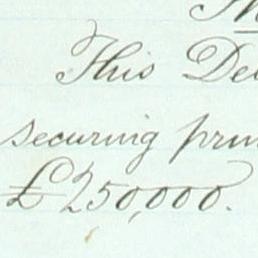 This De
securing prin
£250,000.